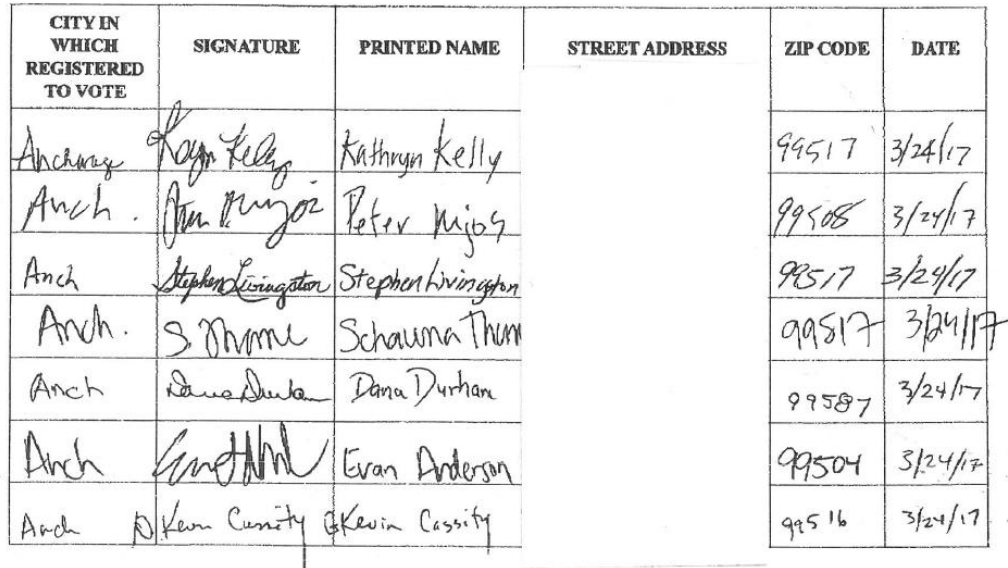 CITY IN WHICH REGISTERED TO VOTE SIGNATURE PRINTED NAME STREET ADDRESS ZIP CODE DATE
Anchorage Kathryn Kelly 99517 3/24/17
Anch. Peter Mjos 99508 3/24/17
Anch Stephen Livingston Stephen Livingston 99517 3/24/17
Anch. S. Thome Schawna Thom 99517 3/24/17
Anch Dana Durham Dana Durham 99587 3/24/17
Anch Evan Anderson 99504 3/24/17
Anch Kevin Cassity Kevin Cassity 99516 3/24/17